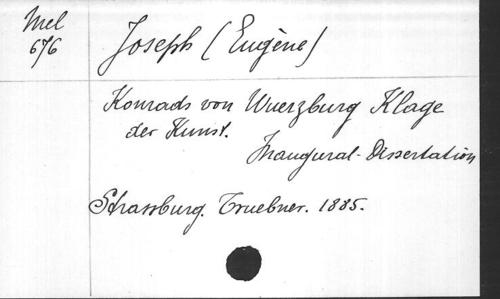 Mel
676
Joseph (Eugène)
Konrads von Wuerzburg Klage
der Kunst.
Inaugural-Dissertation
Strassburg. Truebner. 1885.